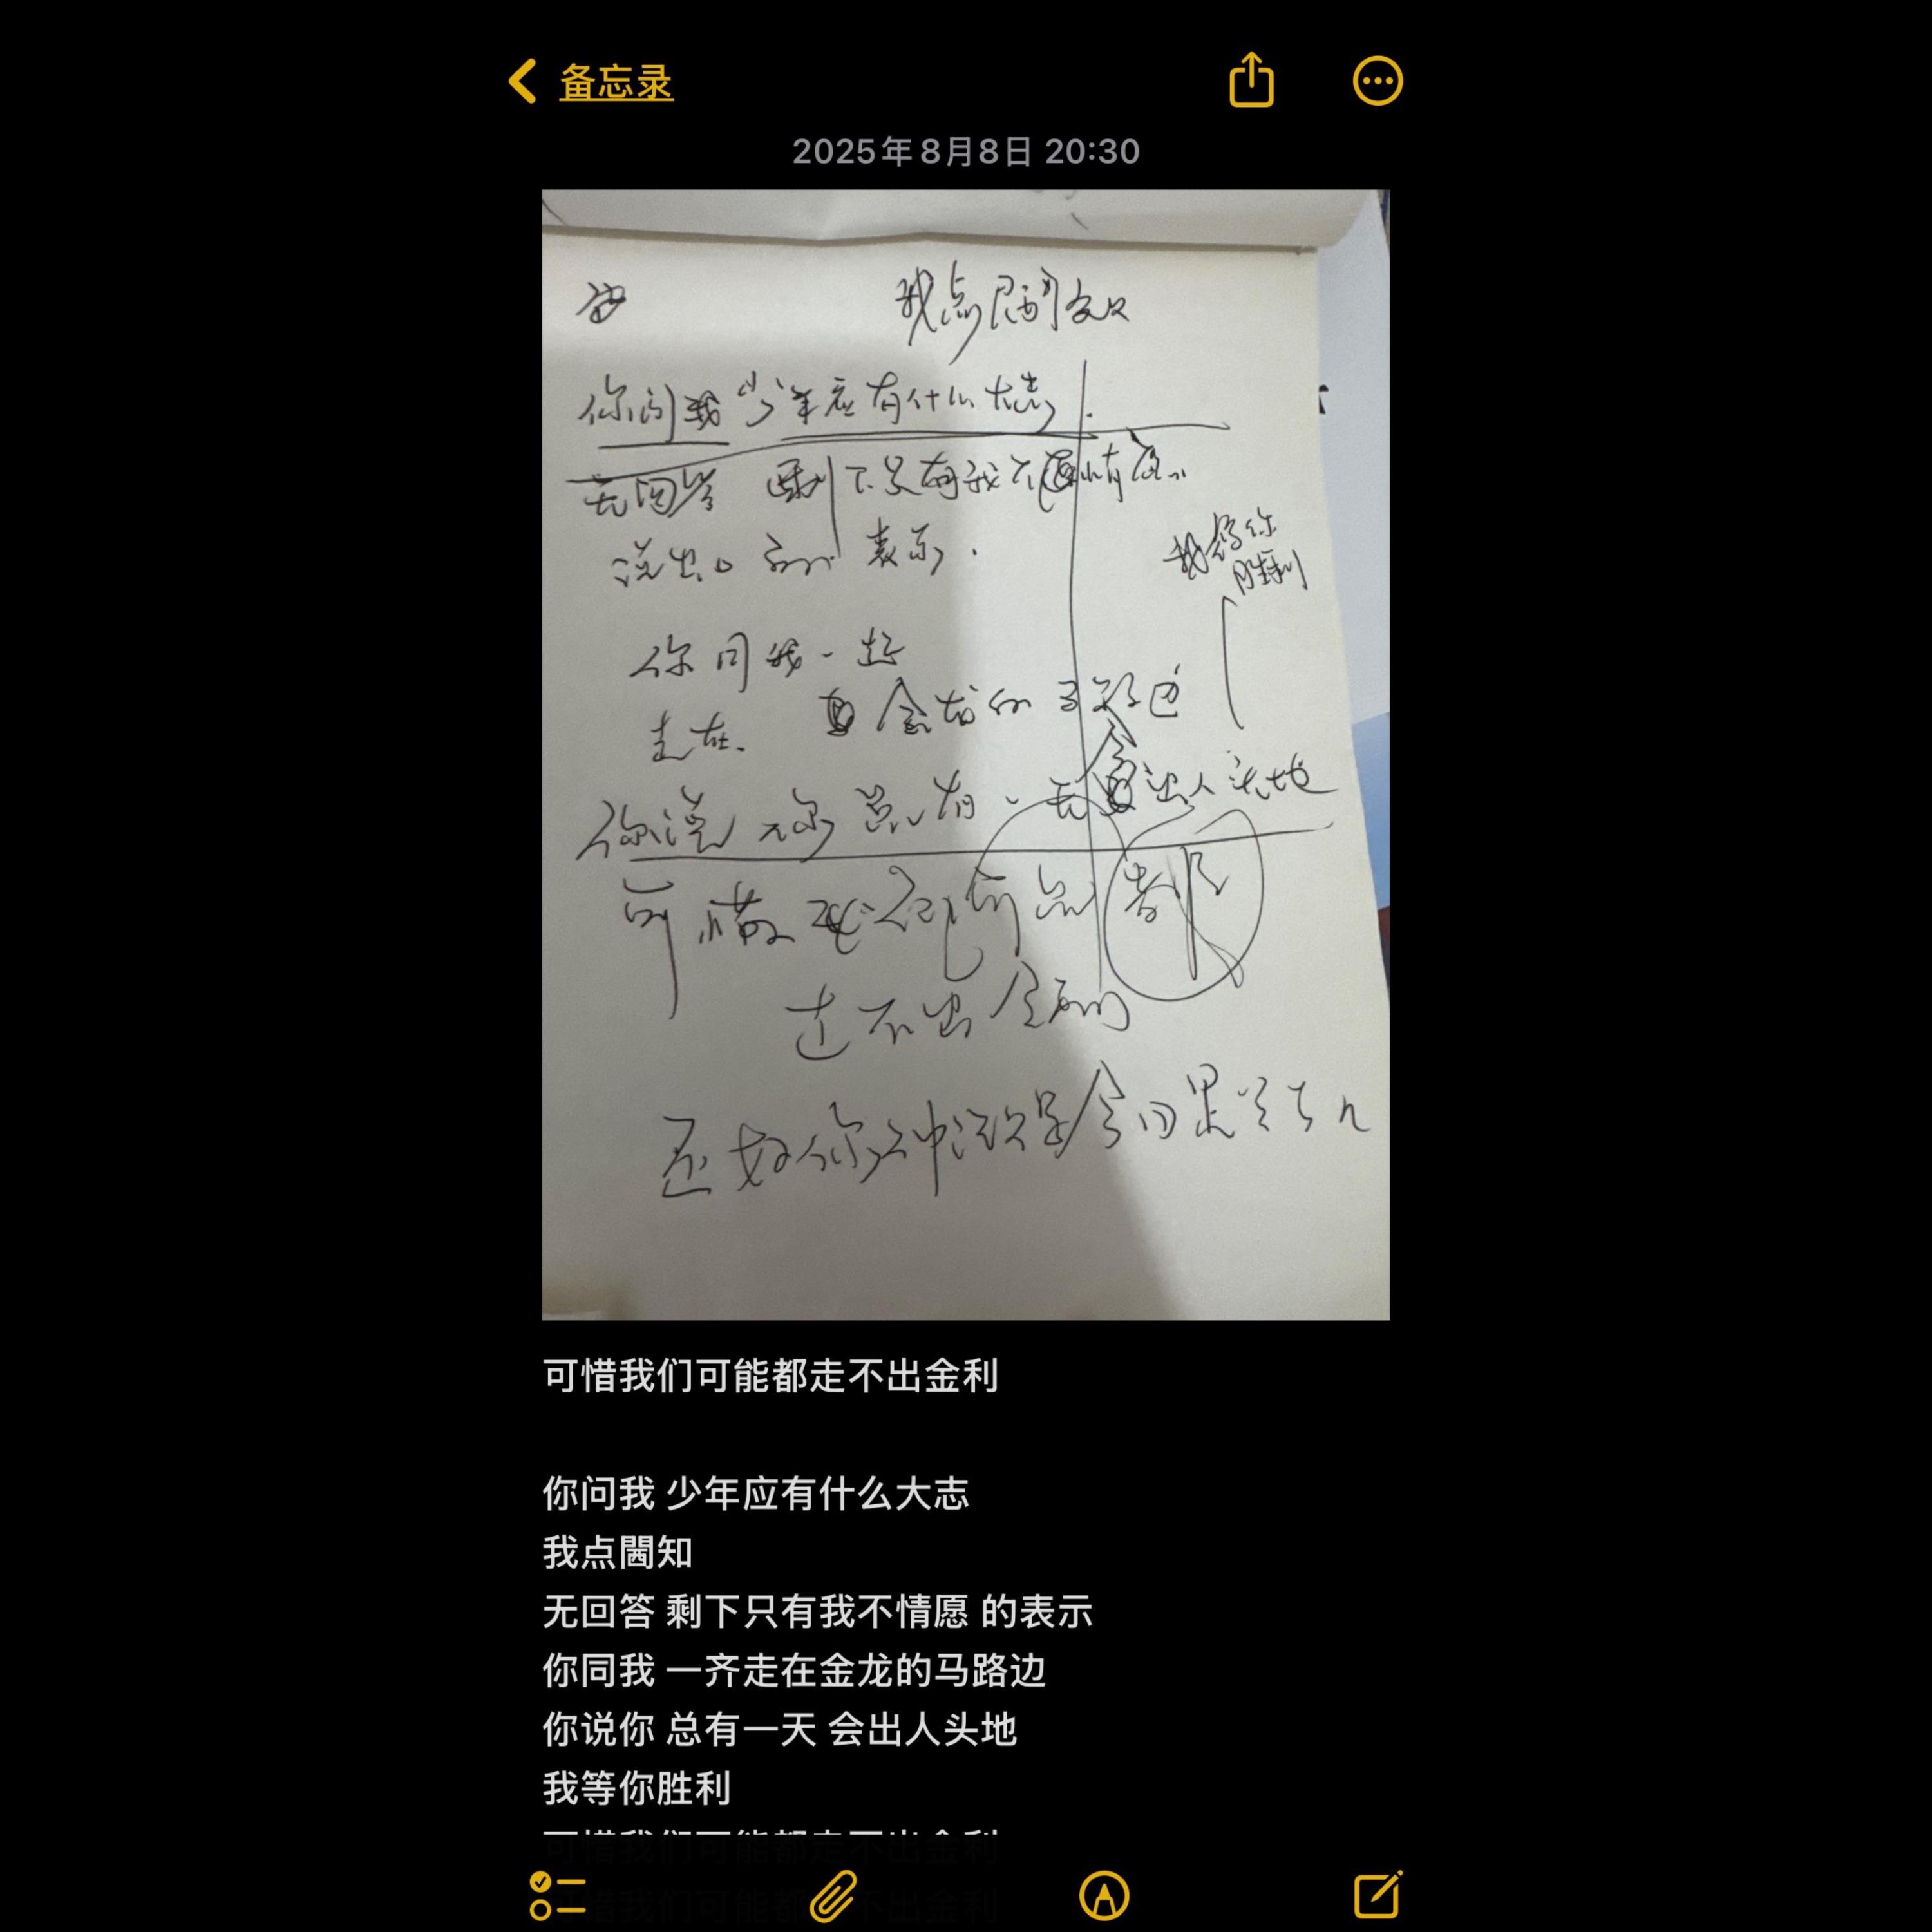 备忘录
2025年8月8日 20:30
我点
你问我 少年应有什么大志
无回答 剩下只有我不情愿
说出口的 表示.
我等你
胜利
你同我一起
走在. 金龙的马路边
你说 你总有一天会出人头地
可惜我们可能都
走不出金利
还好你
可惜我们可能都走不出金利
你问我 少年应有什么大志
我点閪知
无回答 剩下只有我不情愿 的表示
你同我 一齐走在金龙的马路边
你说你 总有一天 会出人头地
我等你胜利
可惜我们可能都走不出金利